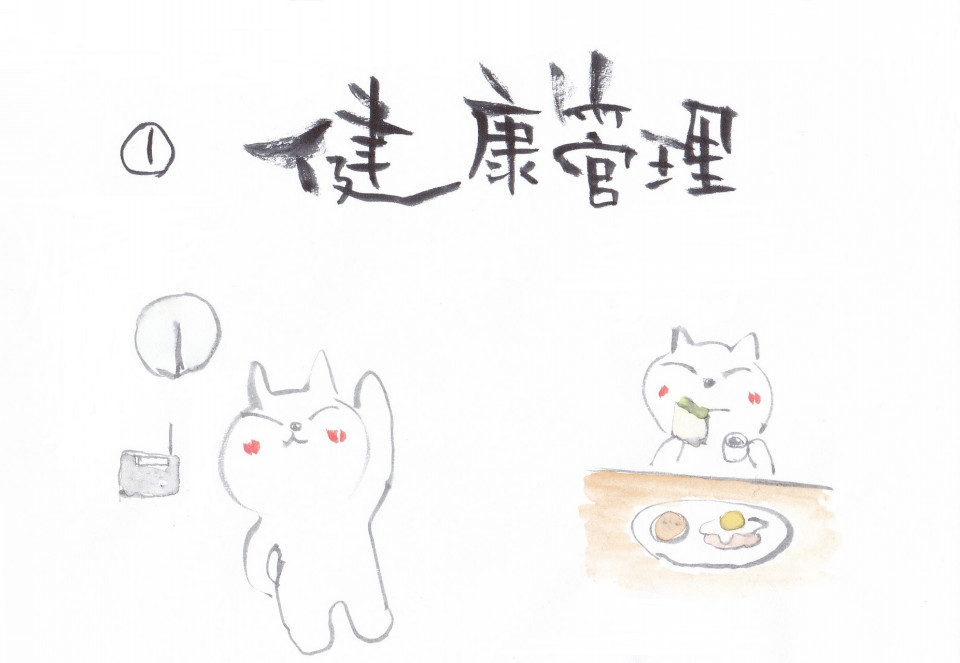 ① 健康管理